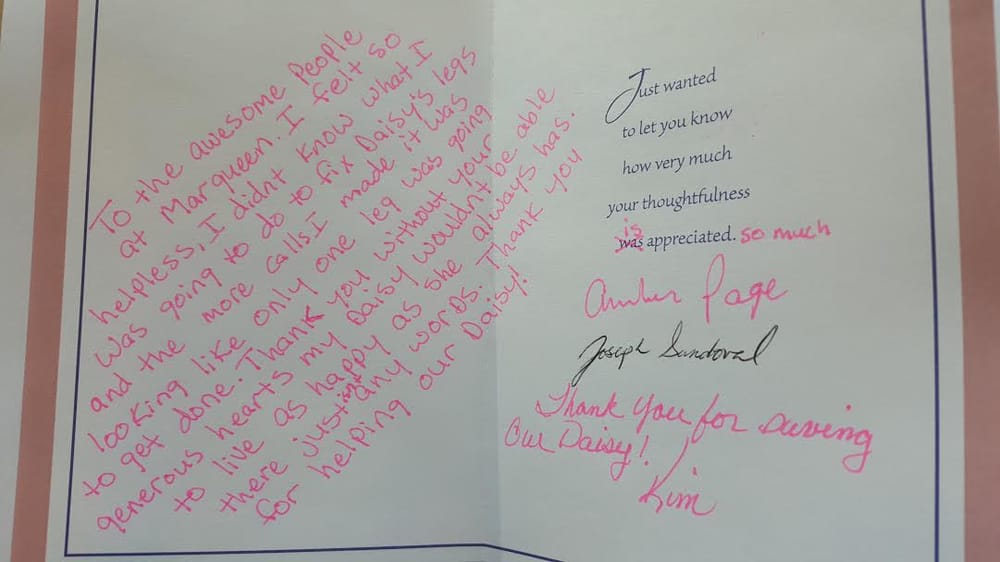 To the awesome People
at Marqueen. I felt so
helpless, I didnt know what I
was going to do to fix Daisy's legs
and the more calls I made it was
looking like only one leg was going
to get done. Thank you without your
generous hearts my Daisy wouldn't be able
to live as happy as she always has.
there just isnt any words. Thank you
for helping our Daisy!
Just wanted
to let you know
how very much
your thoughtfulness
is
was appreciated. so much
Amber Page
Joseph Sandoval
Thank you for saving
Our Daisy!
Kim